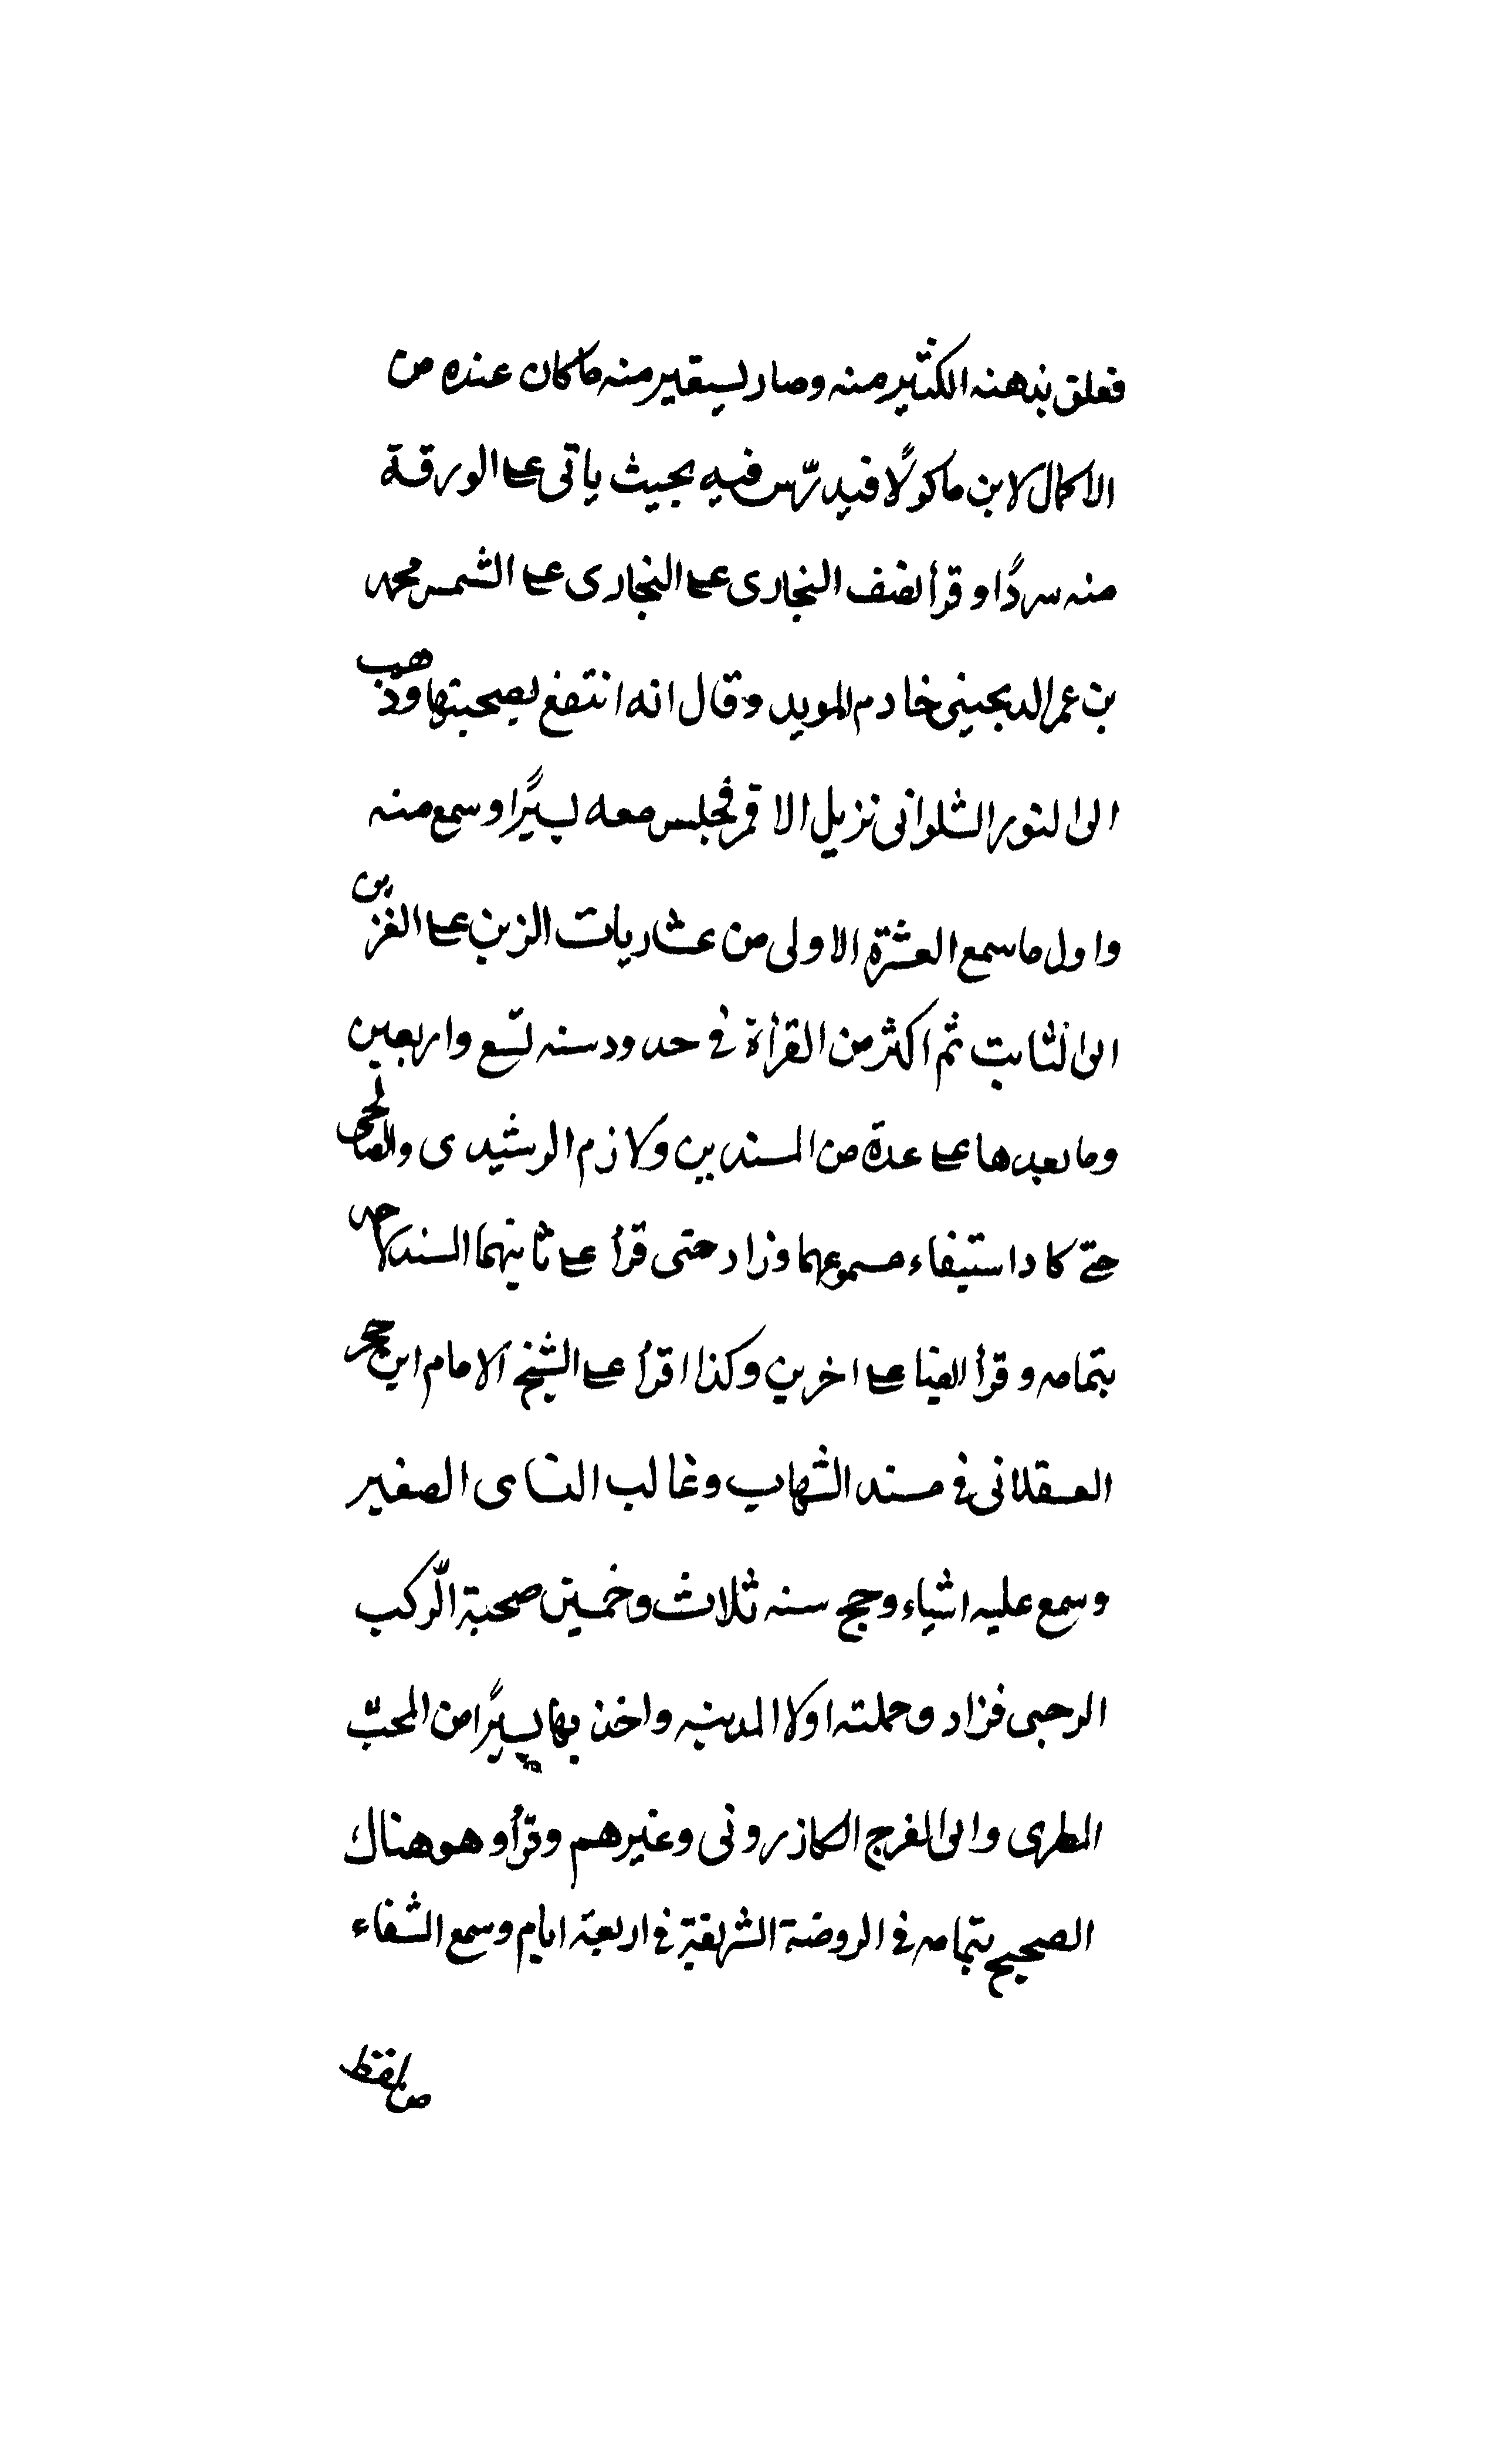 فعلق بذهنه الكثير منه وصار ليسقير منه ما كان عنده من
الاكمال لابن ماكولًا فيدرّس فيه بحيث ياتى على الورقة
منه سردًا وقرأ لضف النجارى على النجارى على الشمس محمد
بن عمر الديجينى خادم المويد وقال انه انتفع بصحبتها وذهب
الى النور الشلوانى نزيل الاقمر فجلس معه يسيًرا وسمع منه
واول ما سمع العشرة الاولى من عشاريات الزين على الغزين
ابى الثابت ثم اكثر من القرأة فى حدود سنه تسع واربعين
وما بعدها على عدة من المسندين ولازم الرشيدى والصالحى
حتى كاد استيفاء مسموعهما وزاد حتى قرأ على ثانيهما المسند لاحمد
بتمامه وقرأ الفيا على اخرين وكذا اقرأ على الشيخ الامام ابن حجر
العسقلانى فى مسند الشهاب وغالب النساى الصغير
وسمع عليه اشياء وحج سنه ثلاث وخمسين صحبة الّركب
الرحبى فزاد وحملته اولا المدينه واخذ بها يسيًرا من المحبّ
المطرى وابى الفرج الكازرونى وغيرهم وقرأ وهو هناك
الصحيح بتمامه فى الروضة الشريفة فى اربعة ايام وسمع الشفاء
من لفظ